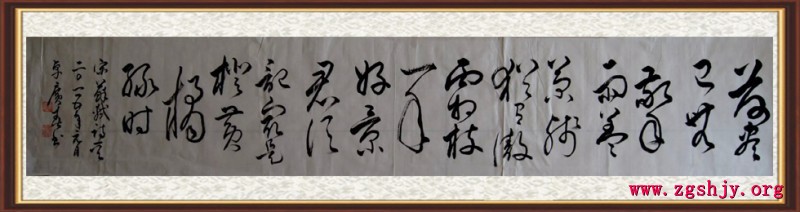 荷尽
已无
擎
雨盖
菊残
犹有傲
霜枝
一年
好景
君须
记最是
橙黄
橘
绿时
宋苏轼诗
二〇一五年元月
www.zgshjy.org